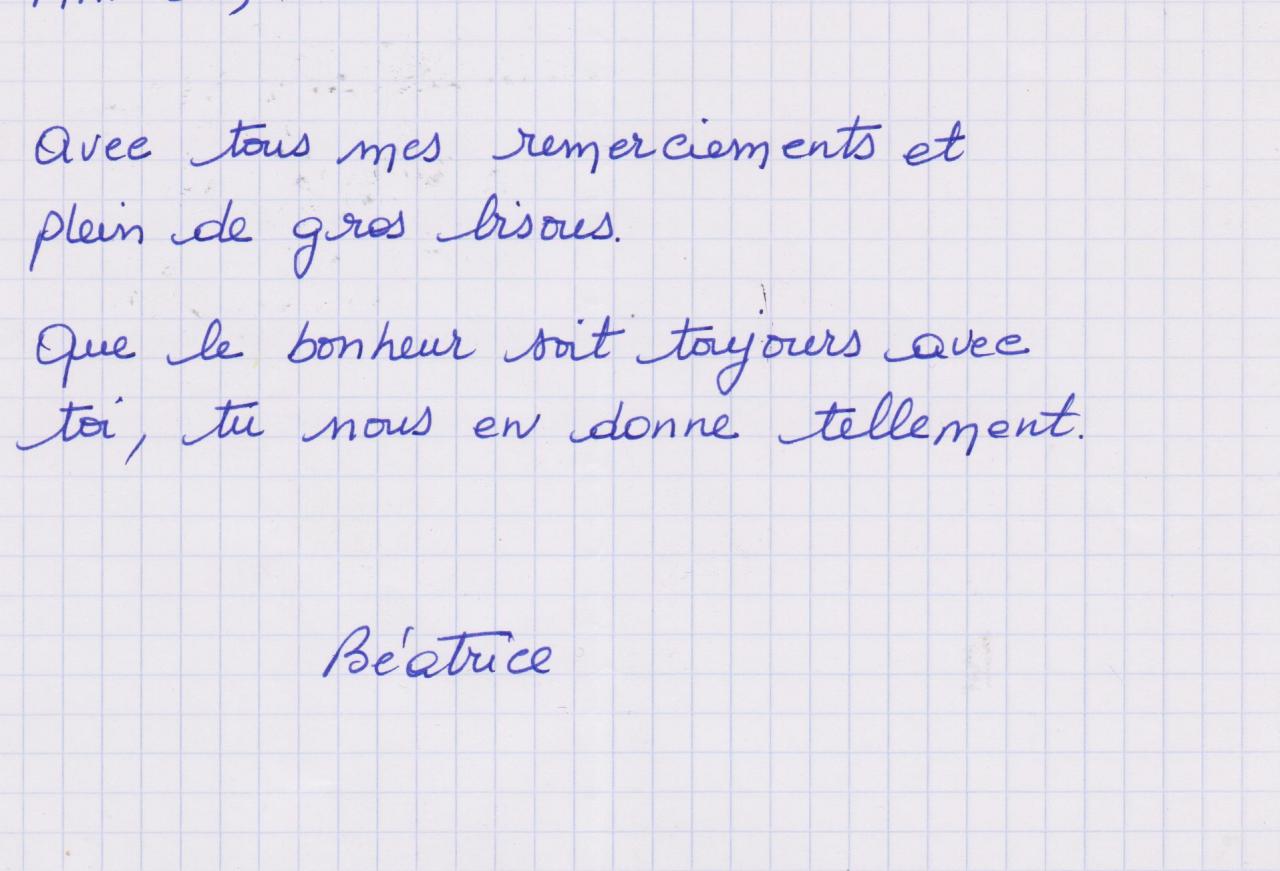 Avec tous mes remerciements et
plein de gros bisous.
Que le bonheur soit toujours avec
toi, tu nous en donne tellement.
Béatrice